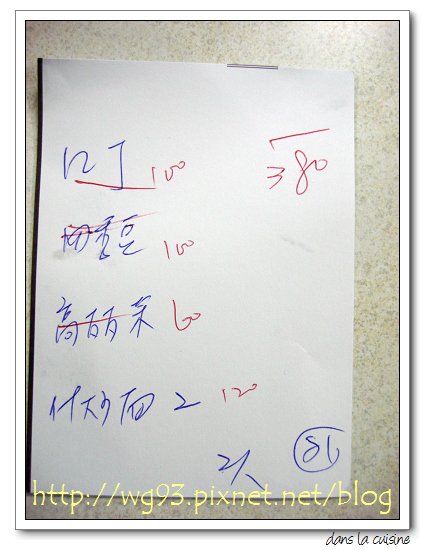 100 380
四季豆 100
高丽菜 60
什炒面 2 120
2人
http://wg93.pixnet.net/blog
dans la cuisine